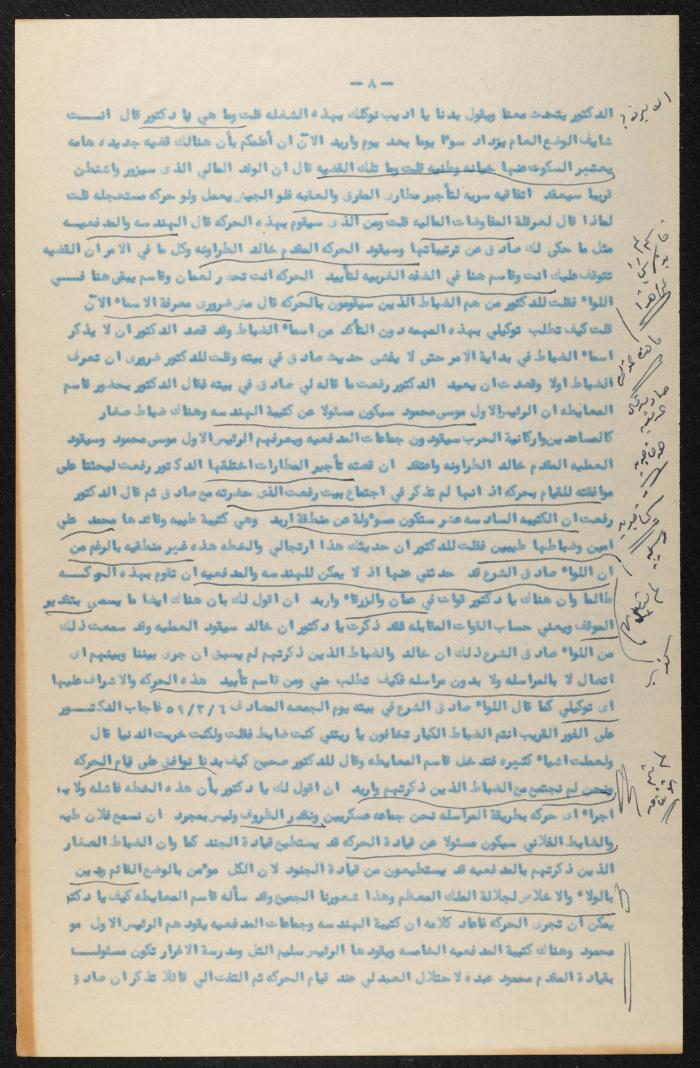 — ٨ —
الدكتور يتحدث معنا ويقول بدنا يا اديب نوكلك بهذه الشغله قلت وما هي يا دكتور قال انــت
شايف الوضع العام يزداد سوءا يوما بعد يوم واريد الآن ان أطمكم بأن هنالك قضيه جديده هامه
يعتبر السكوت عنها خيانه وطنيه قلت وما تلك القضيه قال ان الوفد المالي الذى سيزور واشنطن
قريبا سيعقد اتفاقيه سريه لتأجير مطارى المفرق والعقبه فلو الجيش يعمل ولو حركه مستعجله قلت
لماذا قال لعرقلة المفاوضات الماليه قلت ومن الذى سيقوم بهذه الحركه قال الهندسه والمدفعيــه
مثل ما حكى لك صادق عن ترتيباتها وسيقود الحركه المقدم خالد الطراونه وكل ما في الامر ان القضيه
تتوقف عليك انت وقاسم هنا في الضفه الغربيه لتأييد الحركه انت تحضر لعمان وقاسم يبقى هنا فــي
اللواء فقلت للدكتور من هم الضباط الذين سيقومون بالحركه قال مش ضرورى معرفة الاسماء الآن
قلت كيف تطلب توكيلي بهذه المهمه دون التأكد من اسماء الضباط وقد قصد الدكتور ان لا يذكر
اسماء الضباط في بداية الامر حتى لا يفشى حديث صادق في بيته وقلت للدكتور ضرورى ان تعرف
الضباط اولا وقصدت ان يعيد الدكتور رفعت ما قاله لي صادق في بيته فقال الدكتور بحضور قاسم
المعايطه ان الرئيس الاول موسى محمود سيكون مسئولا عن كتيبة الهندسه وهناك ضباط صغار
كالمساعدين واركانية الحرب سيقودون جماعات المدفعيه ويعرفهم الرئيس الاول موسى محمود وسيقود
العطيه المقدم خالد الطراونه واعتقد ان قصته تأجير المطارات اختلقها الدكتور رفعت ليحثنا على
موافقته للقيام بحركه اذ انها لم تذكر في اجتماع بيت رفعت الذى حضرته مع صادق ثم قال الدكتور
رفعت ان الكتيبه السادسه عشر ستكون مسوءولة عن منطقة اربد وهي كتيبة طيبه وقائدها محمد علي
امين وضباطها طيبين فقلت للدكتور ان حديثك هذا ارتجالي والخطه هذه غير منطقيه بالرغم من
ان اللواء صادق الشرع قد حدثني عنها اذ لا يمكن للهندسه والمدفعيه ان تقوم بهذه الحركــه
طالما وان هناك يا دكتور قوات في عمان والزرقاء واريد ان اقول لك بان هناك ايضا ما يسمى بتقدير
الموقف ويعني حساب القوات المقابله فقد ذكرت يا دكتور ان خالد سيقود العطيه وقد سمعت ذلك
من اللواء صادق الشرع ذلك ان خالد والضباط الذين ذكرتهم لم يسبق ان جرى بيننا وبينهم اى
اتصال لا بالمراسله ولا بدون مراسله فكيف تطلب مني ومن قاسم تأييد هذه الحركه والاشراف عليها
اى توكيلي كما قال اللواء صادق الشرع في بيته يوم الجمعه المصادف ٥٩/٣/٦ فاجاب الدكتــور
على الفور القريب انتم الضباط الكبار تخافون يا ريتني كنت ضابط فقلت ولكنت خربت الدنيا قال
ولعطت اشياء كثيره فتدخل قاسم المعايطه وقال للدكتور صحيح كيف بدنا نوافق على قيام الحركه
ونحن لم نجتمع مع الضباط الذين ذكرتهم واريد ان اقول لك يا دكتور بأن هذه الخطه فاشله ولا يمـ
اجراء اى حركه بطريقة المراسله نحن جماعه عسكريين ونقدر الظروف وليس بمجرد ان نسمع فلان طيب
والضابط الفلاني سيكون مسئولا عن قيادة الحركه قد يستطيع قيادة الجند كما وان الضباط الصغار
الذين ذكرتهم بالمدفعيه قد يستطيعون من قيادة الجنود لان الكل موءمن بالوضع القائم ويدين
بالولاء والاخلاص لجلالة الملك المعظم وهذا شعورنا الجميع وقد سأله قاسم المعايطه كيف يا دكتور
يمكن أن تجرى الحركه فاعاد كلامه ان كتيبة الهندسه وجماعات المدفعيه يقودهم الرئيس الاول مو
محمود وهناك كتيبة المدفعيه الخامسه ويقودها الرئيس سليم التل ومدرسة الاغرار تكون مسئولــه
بقيادة المقدم محمود عبده لاحتلال العبدلي عند قيام الحركه ثم التفت الي قائلا تذكر ان صادق